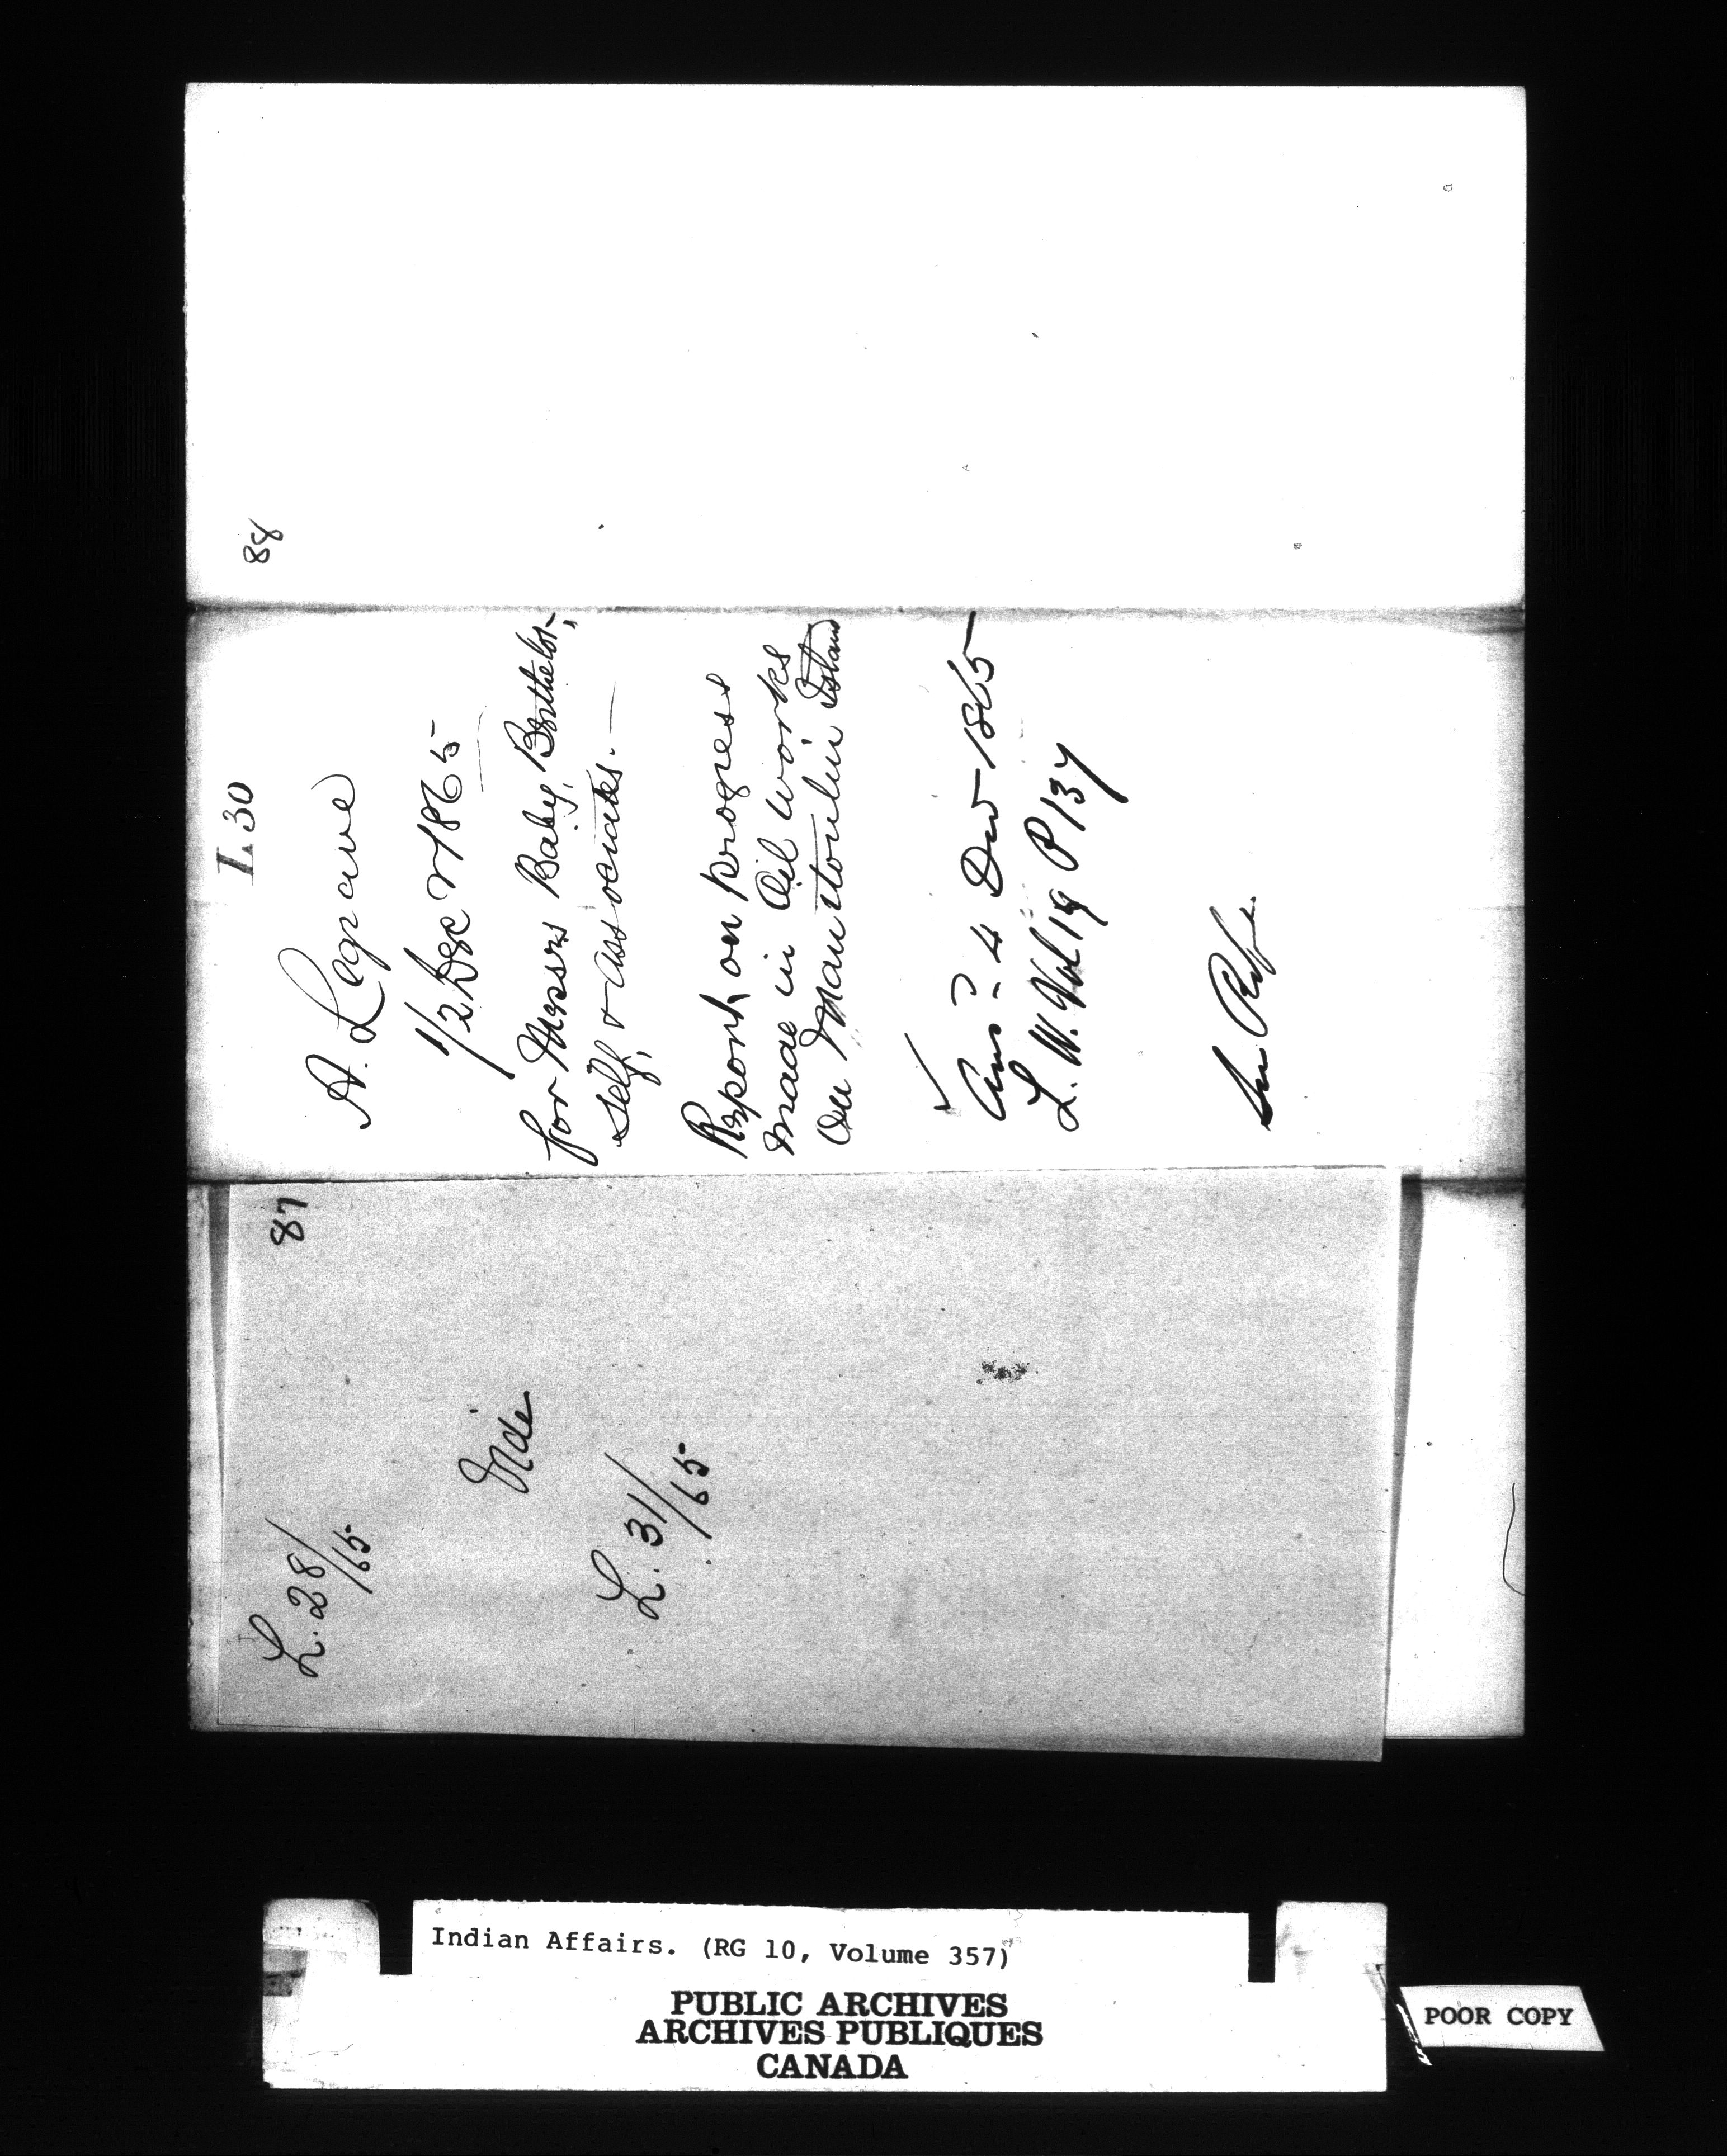 88
L. 30
A. Legare
1/2 Dec r 1865
for Messrs Baby, Berthelot,
self, & associates.
Report, on progress
made in Oil works
On Manitoulin Island
Ans.d 4 Dec 1865
L. W. Vol 19 P 137
87
L. 28/65
Inde
L. 31/65
Indian Affairs. (RG 10, Volume 357)
PUBLIC ARCHIVES
ARCHIVES PUBLIQUES
CANADA
POOR COPY